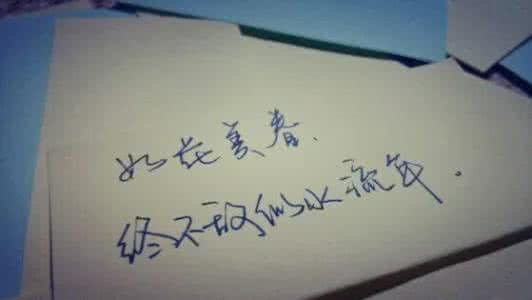 如花美眷、
终不敌似水流年.